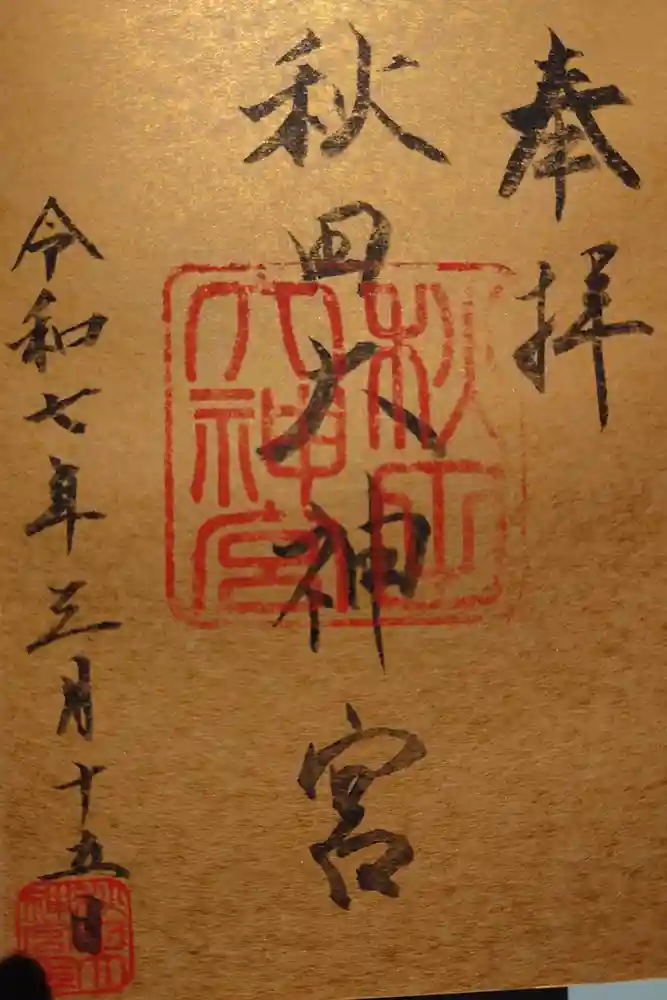 奉拝
秋田大神宮
令和七年三月十五日
秋田大神宮